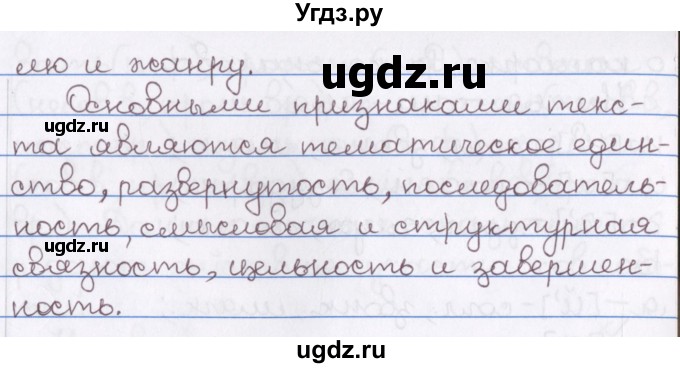 Угдз.ру
лю и жанру.
ugdz.ru
Основными признаками текс-
ugdz.ru
та являются тематическое един-
ство, развернутость, последователь-
ность, смысловая и структурная
ugdz.ru
связность, цельность и завершен-
ность.
ugdz.ru